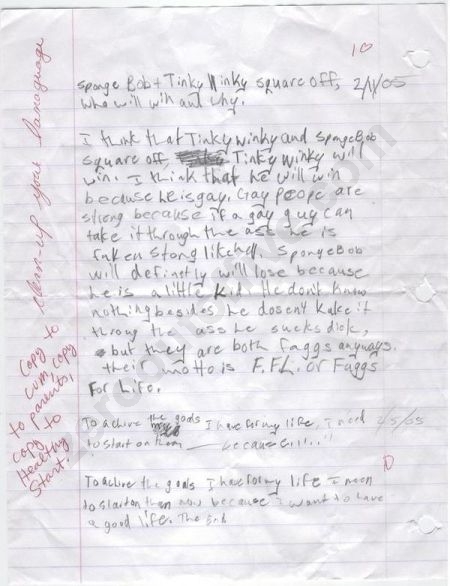 10
sponge Bob + Tinky Winky square off, 2/1/05
who will win and why.
I think that Tinky winky and SpongeBob
square off Tinky winky will
win. I think that he will win
because he is gay. Gay peope are
strong because if a gay guy can
take it through the ass he is
fuken stong like hell. SpongeBob
will definetly will lose because
he is a little kid. He don't know
nothing besides he dosent take it
throug the ass he sucks dick,
but they are both faggs anyways.
their motto is F.F.L. or Faggs
For Life.
To achive the goals I have for my life, I need 2/5/05
to start on them because
10
To achive the goals I have for my life I neen
to start on then now because I want to have
a good life. The End
clean-up your language
copy to
cum, copy
to parents,
copy to
Healthy
Start.